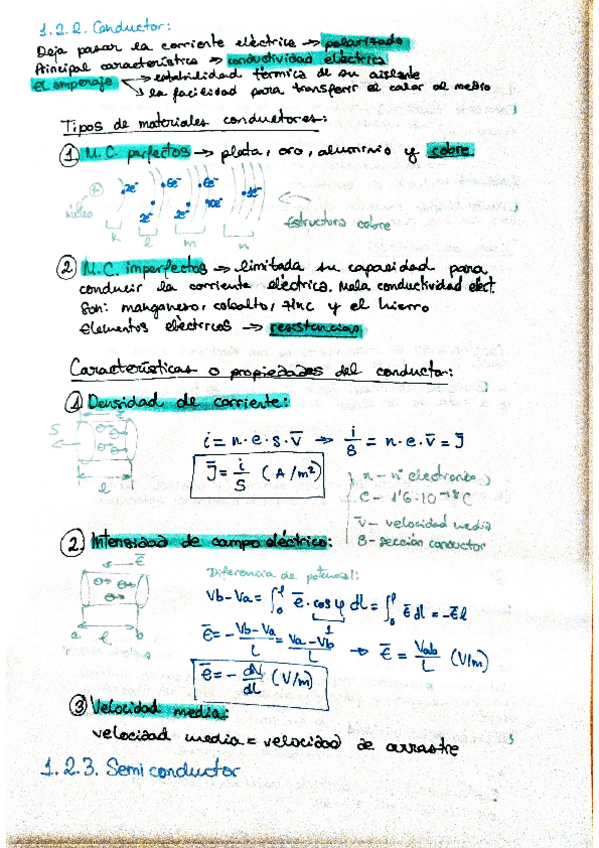 1.2.2. Conductor:
Deja pasar la corriente eléctrica → polarizado
Principal característica → conductividad eléctrica
el amperaje → estabilidad térmica de su aislante
↳ la facilidad para transferir el calor al medio
Tipos de materiales conductores:
① M.C. perfectos → plata, oro, aluminio y cobre
+ 2e⁻ 6e⁻ 6e⁻
núcleo 2e⁻ 2e⁻ 10e⁻
estructura cobre
k l m n
② M.C. imperfectos → limitada su capacidad para
conducir la corriente eléctrica. Mala conductividad eléct.
Son: manganeso, cobalto, zinc y el hierro
elementos eléctricos → resistencias
Características o propiedades del conductor:
① Densidad de corriente:
S
l
i = n·e·s·v̄ → i/s = n·e·v̄ = J̄
J̄ = i/S (A/m²)
n – nº electrones
e – 1'6·10⁻¹⁹ C
v̄ – velocidad media
S – sección conductor
② Intensidad de campo eléctrico:
ē
a l b
Diferencia de potencial:
Vb-Va = ∫₀ˡ ē·cosφ dl = ∫₀ˡ ē dl = -ēl
1
ē = - Vb-Va/L = Va-Vb/L → ē = Vab/L (V/m)
ē = - dV/dl (V/m)
③ Velocidad media:
velocidad media = velocidad de arrastre
1.2.3. Semiconductor